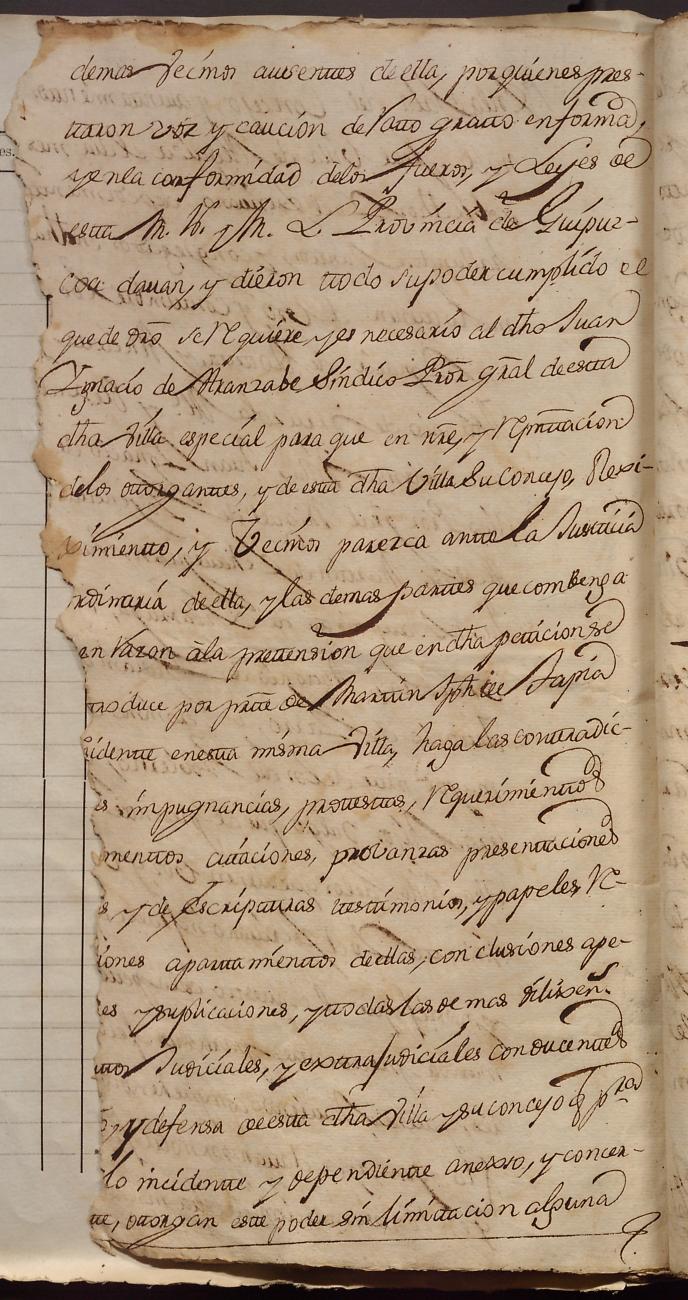 demas vecinos ausentes de ella, por quienes pres-
ttaron voz y caución de Ratto gratto en forma,
y en la conformidad de los fueros, y Leyes de
estta M. N. y M. L. Provincia de Guipuz-
coa davan, y dieron ttodo su poder cumplido el
que de dro se Requiere y es necesario al dho Juan
Ygnacio de Aranzabe Síndico Pror gral de estta
dha Villa especial para que en nre, y Represnttacion
de los ottorgantes, y de estta dha Villa su Concejo, Rexi-
vimientto, y Vecinos parezca antte la Justicia
ordinaria de ella, y las demas parttes que combenga
en Razon à la prettension que en dha peticion se
ttroduce por partte de Marttin Jph de Tapia
sidentte en estta misma Villa, haga las conttradic-
s impugnancias, prottesttas, Requerimienttos
menttos cittaciones, probanzas presenttaciones
s y de Escriptturas ttesttimonios, y papeles Re-
iones aparttamienttos de ellas, conclusiones ape-
es y suplicaciones, y ttodas las demas dilixens.
uttos Judiciales, y exttrajudiciales conducenttes
y defensa de estta dha Villa y su concejo q pra
lo incidentte y dependientte anexso, y concer-
tte, ottorgan estte poder sin limittacion alguna